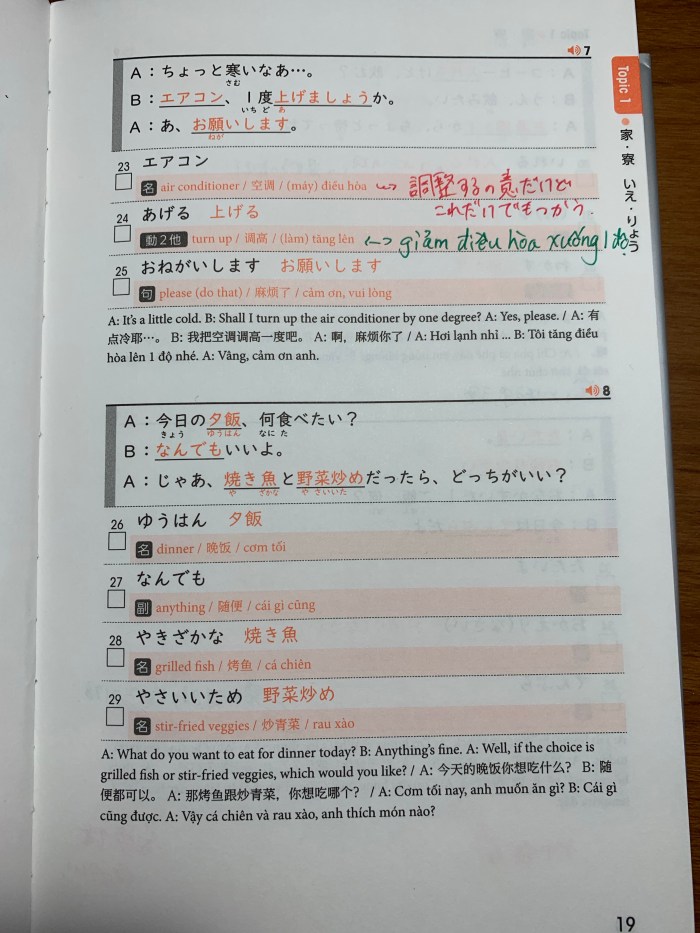 7
A：ちょっと寒いなあ…。
さむ
B：エアコン、1度上げましょうか。
いちど あ
A：あ、お願いします。
ねが
Topic 1
家・寮 いえ・りょう
23 エアコン
名 air conditioner / 空调 / (máy) điều hòa 調整するの意だけど
これだけでもつかう.
24 あげる 上げる
動2他 turn up / 调高 / (làm) tăng lên ←→ giảm điều hòa xuống 1 độ.
25 おねがいします お願いします
句 please (do that) / 麻烦了 / cảm ơn, vui lòng
A: It's a little cold. B: Shall I turn up the air conditioner by one degree? A: Yes, please. / A: 有
点冷耶…。 B: 我把空调调高一度吧。 A: 啊，麻烦你了 / A: Hơi lạnh nhỉ ... B: Tôi tăng điều
hòa lên 1 độ nhé. A: Vâng, cảm ơn anh.
8
A：今日の夕飯、何食べたい？
きょう ゆうはん なに た
B：なんでもいいよ。
A：じゃあ、焼き魚と野菜炒めだったら、どっちがいい？
や ざかな や さいいた
26 ゆうはん 夕飯
名 dinner / 晚饭 / cơm tối
27 なんでも
副 anything / 随便 / cái gì cũng
28 やきざかな 焼き魚
名 grilled fish / 烤鱼 / cá chiên
29 やさいいため 野菜炒め
名 stir-fried veggies / 炒青菜 / rau xào
A: What do you want to eat for dinner today? B: Anything's fine. A: Well, if the choice is
grilled fish or stir-fried veggies, which would you like? / A: 今天的晚饭你想吃什么？ B: 随
便都可以。 A: 那烤鱼跟炒青菜，你想吃哪个？ / A: Cơm tối nay, anh muốn ăn gì? B: Cái gì
cũng được. A: Vậy cá chiên và rau xào, anh thích món nào?
19